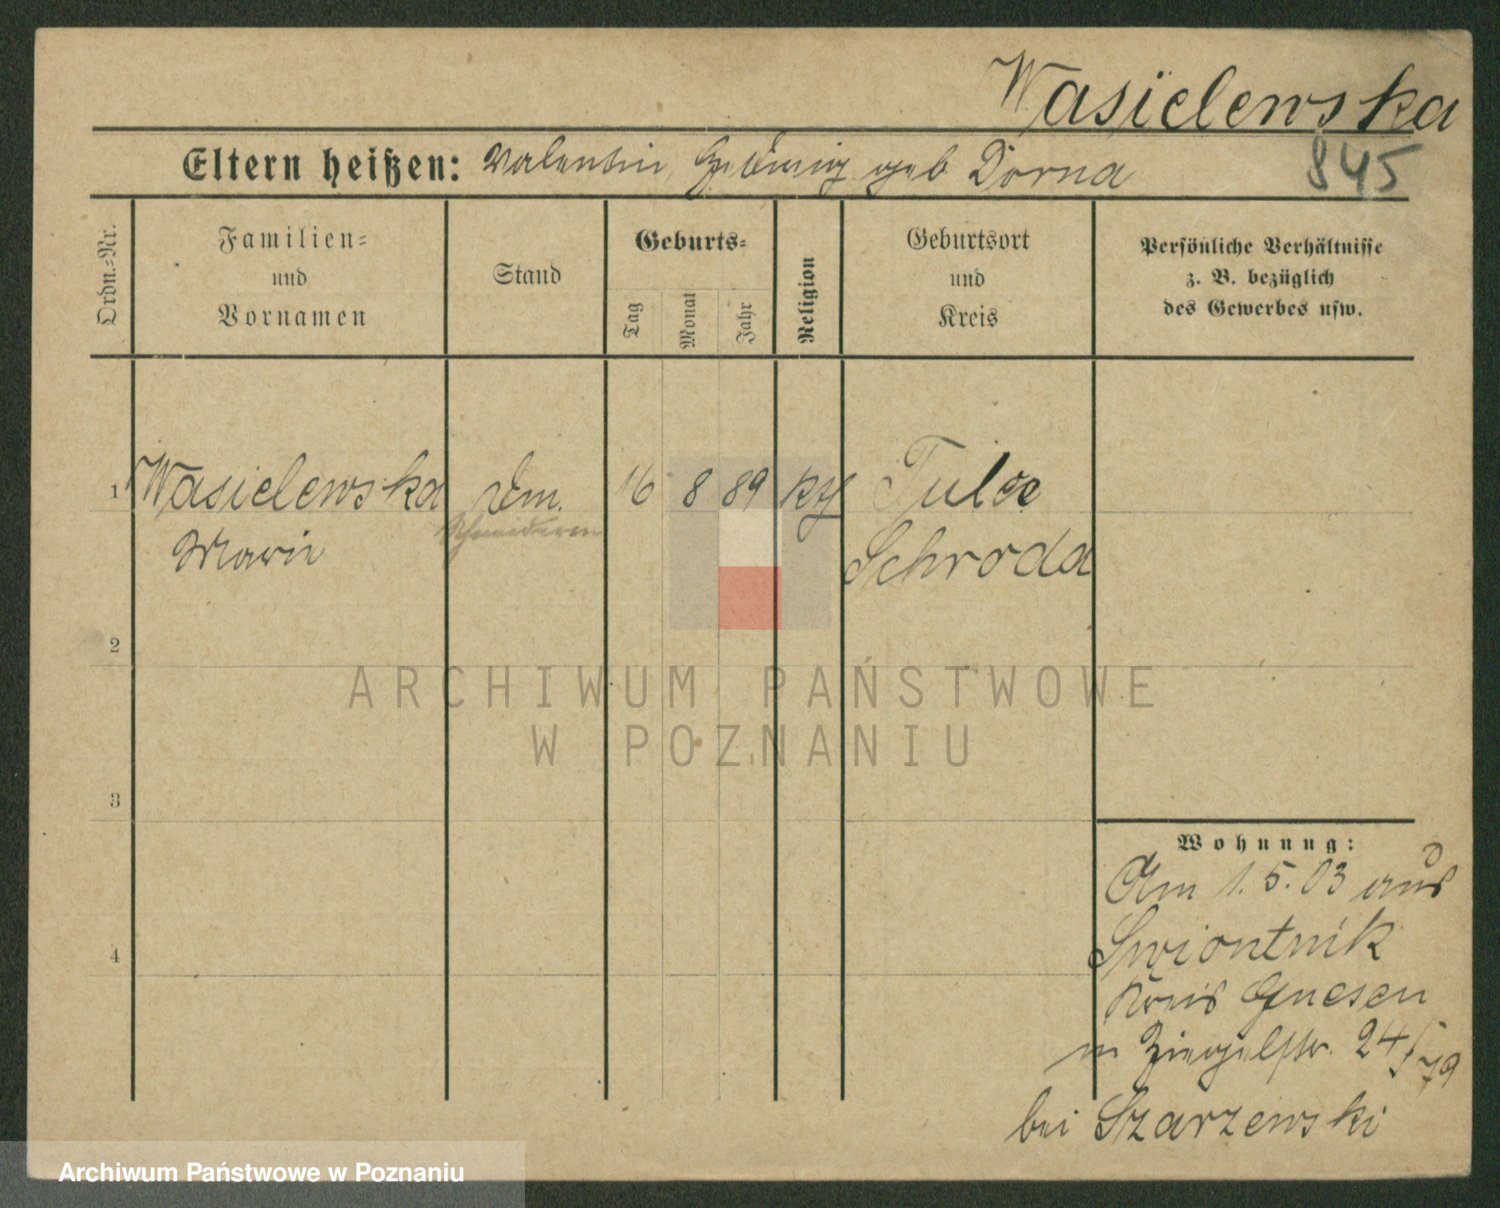 Wasielewska
845
Eltern heißen: Valentin, Hedwig geb Dorna
Ordn.-Nr.
Familien-
und
Vornamen
Stand
Geburts-
Tag
Monat
Jahr
Religion
Geburtsort
und
Kreis
Persönliche Verhältnisse
z. B. bezüglich
des Gewerbes usw.
1 Wasielewska 16 8 89 kth Tulce
Marie
Schneiderin
Schroda
2
3
4
ARCHIWUM PAŃSTWOWE
W POZNANIU
Wohnung:
Am 1.5.03 aus
Swiontnik
Kreis Gnesen
n Ziegelstr. 24/
79
bei Szarzewski
Archiwum Państwowe w Poznaniu